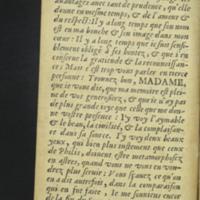 avantages avec tant de prudence, que elle
donne en mesme temps, & de l'amour &
du respect: Il y a long temps que son nom
est en ma bouche & son image dans mon
cœur: Il y a long temps que je suis sensi-
blement obligé à ses bontez, & que i'en
conserue la gratitude & la reconnoiss-
ance. Mais c'est trop vous parler en tierce
personne: Trouuez bon, MADAME,
que ie vous die, que ma memoire est plei-
ne de vos generositez, & que ie n'ay pas
de plus grande ioye que celle que me don-
ne vostre presence: I'y voy l'aymable
& le beau, la ciuilité, & la complaisan-
ce dans sa source. I'y voy deux beaux
yeux, qui bien plus iustement que ceux
de Philis, doiuent estre metamorphosez
en astres, quand vous ne vous en vou-
drez plus seruir: Vous sçauez ce qu'on
a dit autrefois, dans la comparaison
qui en fut faite, le me souuiens encor
de la fin